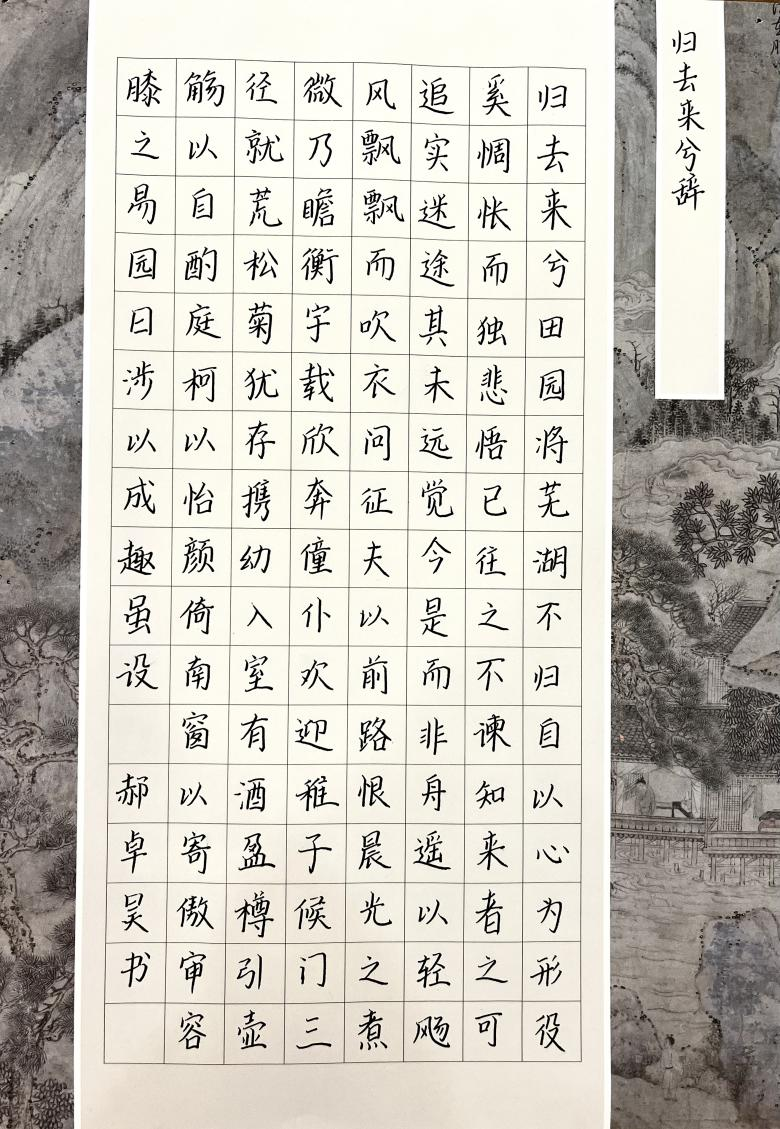 归去来兮辞
归去来兮田园将芜湖不归自以心为形役
奚惆怅而独悲悟已往之不谏知来者之可
追实迷途其未远觉今是而非舟遥以轻飏
风飘飘而吹衣问征夫以前路恨晨光之煮
微乃瞻衡宇载欣奔僮仆欢迎稚子候门三
径就荒松菊犹存携幼入室有酒盈樽引壶
觞以自酌庭柯以怡颜倚南窗以寄傲审容
膝之易园日涉以成趣虽设 郝卓昊书